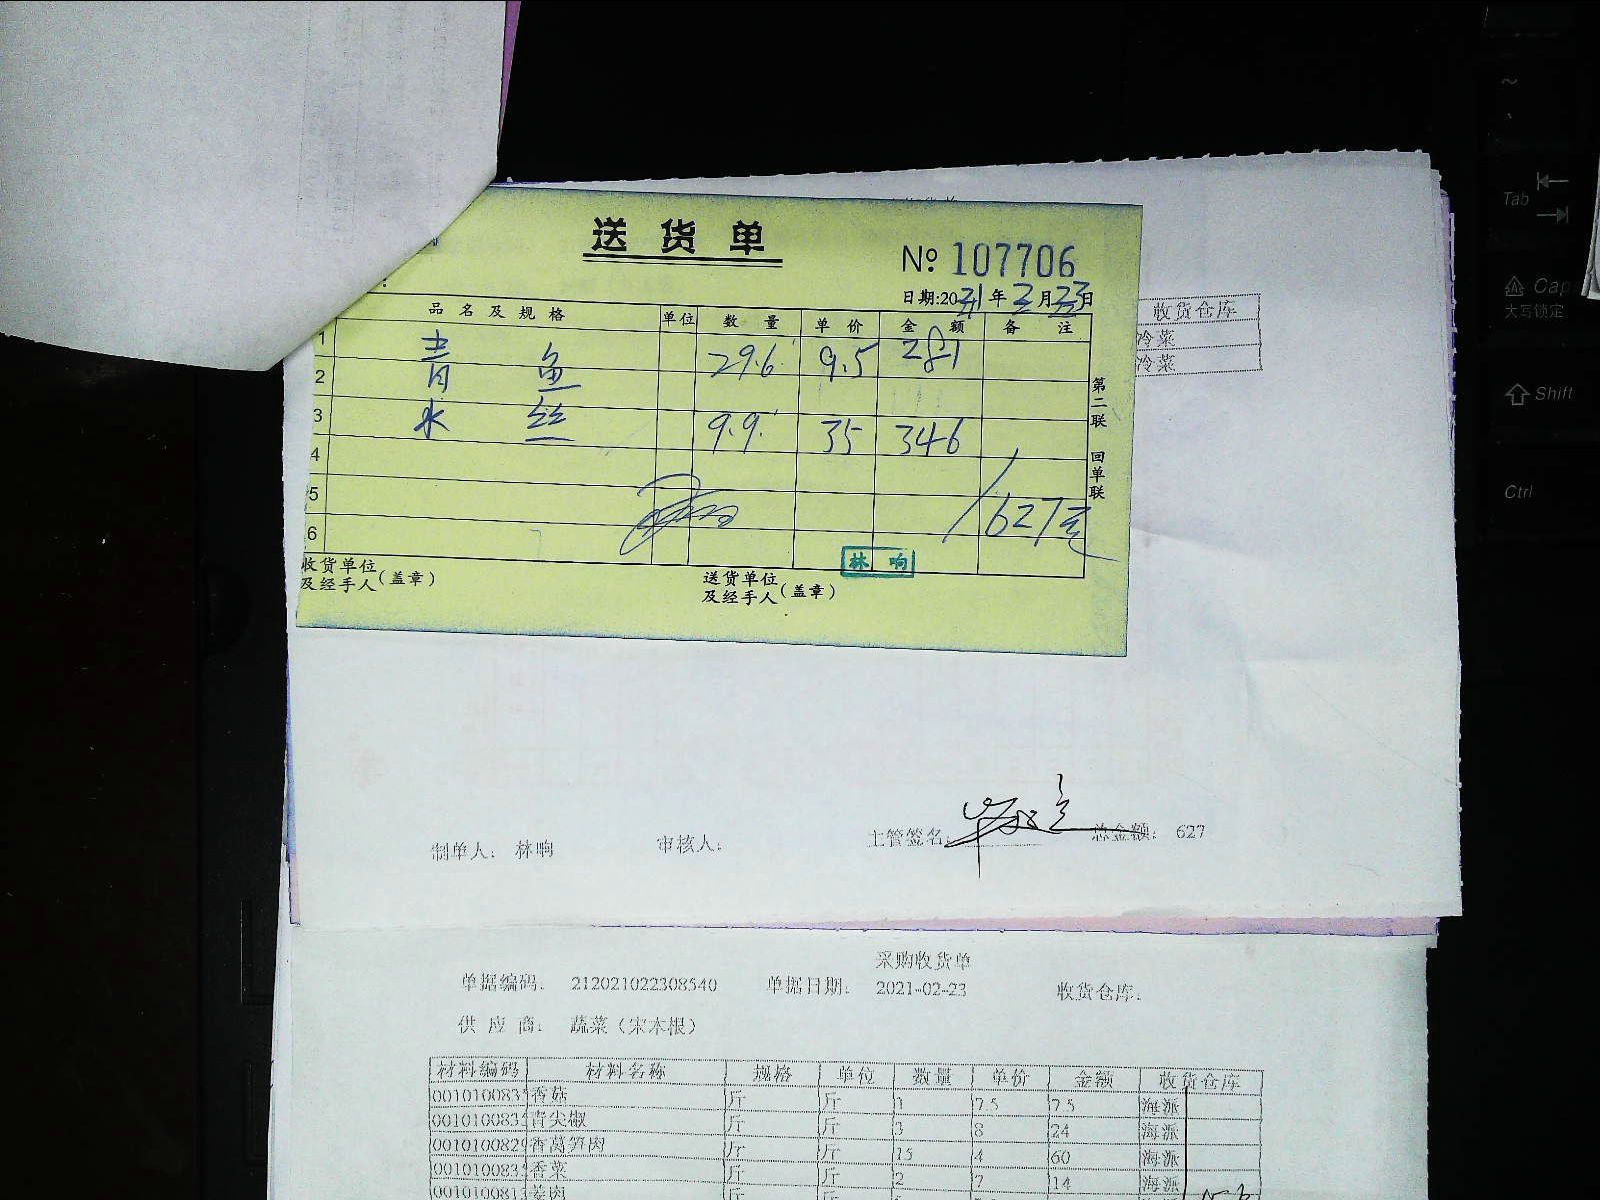 送 货 单
№ 107706
日期:2021年2月23日
品 名 及 规 格 单位 数 量 单 价 金 额 备 注
1 青 鱼 29.6 9.5 281
2
3 水 丝 9.9 35 346
4
5 627元
6
第二联 回单联
收货单位
及经手人(盖章)
送货单位
及经手人(盖章)
林 响
收货仓库
冷菜
冷菜
制单人: 林响 审核人: 主管签名: 总金额: 627
采购收货单
单据编码: 212021022308540 单据日期: 2021-02-23 收货仓库:
供 应 商: 蔬菜(宋本根)
材料编码 材料名称 规格 单位 数量 单价 金额 收货仓库
001010083 香菇 斤 斤 1 7.5 7.5 海派
001010083 青尖椒 斤 斤 3 8 24 海派
001010082 香莴笋肉 斤 斤 15 4 60 海派
001010083 香菜 斤 斤 2 7 14 海派
001010081 姜肉
~
Tab
Cap
大写锁定
Shift
Ctrl